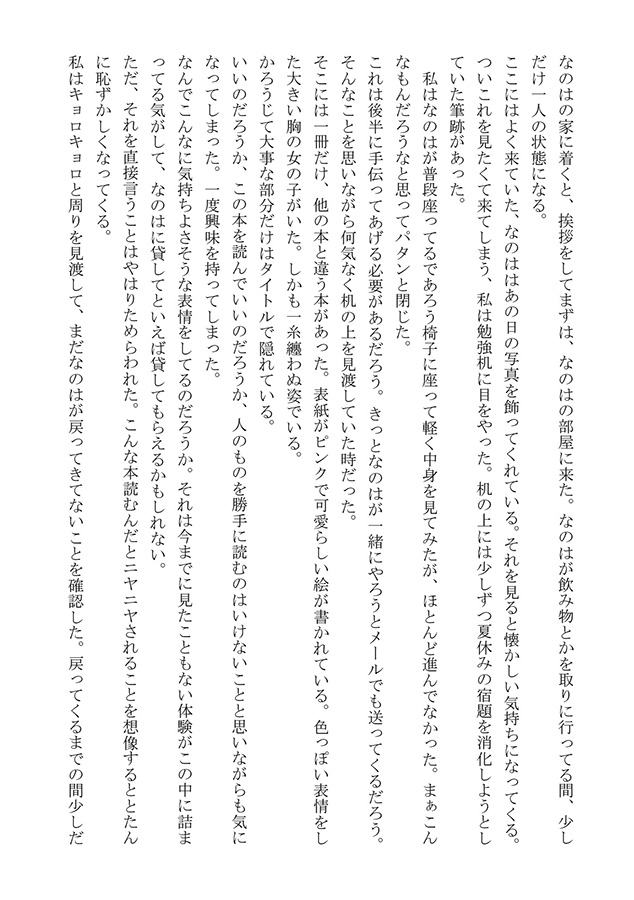 なのはの家に着くと、挨拶をしてまずは、なのはの部屋に来た。なのはが飲み物とかを取りに行ってる間、少し
だけ一人の状態になる。
ここにはよく来ていた、なのははあの日の写真を飾ってくれている。それを見ると懐かしい気持ちになってくる。
ついこれを見たくて来てしまう、私は勉強机に目をやった。机の上には少しずつ夏休みの宿題を消化しようとし
ていた筆跡があった。
　私はなのはが普段座ってるであろう椅子に座って軽く中身を見てみたが、ほとんど進んでなかった。まぁこん
なもんだろうなと思ってパタンと閉じた。
これは後半に手伝ってあげる必要があるだろう。きっとなのはが一緒にやろうとメールでも送ってくるだろう。
そんなことを思いながら何気なく机の上を見渡していた時だった。
そこには一冊だけ、他の本と違う本があった。表紙がピンクで可愛らしい絵が書かれている。色っぽい表情をし
た大きい胸の女の子がいた。しかも一糸纏わぬ姿でいる。
かろうじて大事な部分だけはタイトルで隠れている。
いいのだろうか、この本を読んでいいのだろうか、人のものを勝手に読むのはいけないことと思いながらも気に
なってしまった。一度興味を持ってしまった。
なんでこんなに気持ちよさそうな表情をしてるのだろうか。それは今までに見たこともない体験がこの中に詰ま
ってる気がして、なのはに貸してといえば貸してもらえるかもしれない。
ただ、それを直接言うことはやはりためらわれた。こんな本読むんだとニヤニヤされることを想像するととたん
に恥ずかしくなってくる。
私はキョロキョロと周りを見渡して、まだなのはが戻ってきてないことを確認した。戻ってくるまでの間少しだ